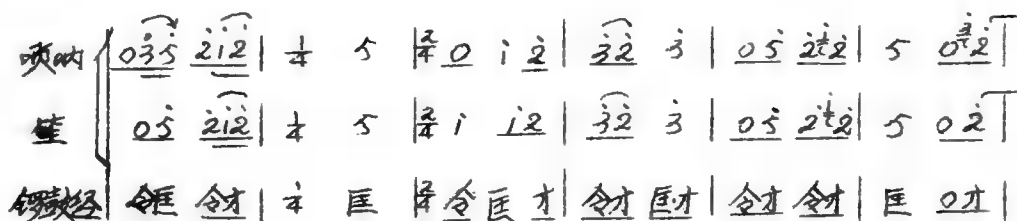 唢呐 0 3̇ 5̇ 2̇ 1̇ 2̇ | 1/4 5 | 2/4 0 1̇ 2̇ | 3̇ 2̇ 3̇ | 0 5̇ 2̇ 1̇ 2̇ | 5 0 3̇ 2̇ |
0 5̇ 2̇ 1̇ 2̇ | 1/4 5 | 2/4 1̇ 1̇ 2̇ | 3̇ 2̇ 3̇ | 0 5̇ 2̇ 1̇ 2̇ | 5 0 2̇ |
锣鼓经 令匡 令才 | 1/4 匡 | 2/4 令 匡 才 | 令才 匡才 | 令才 令才 | 匡 0才 |